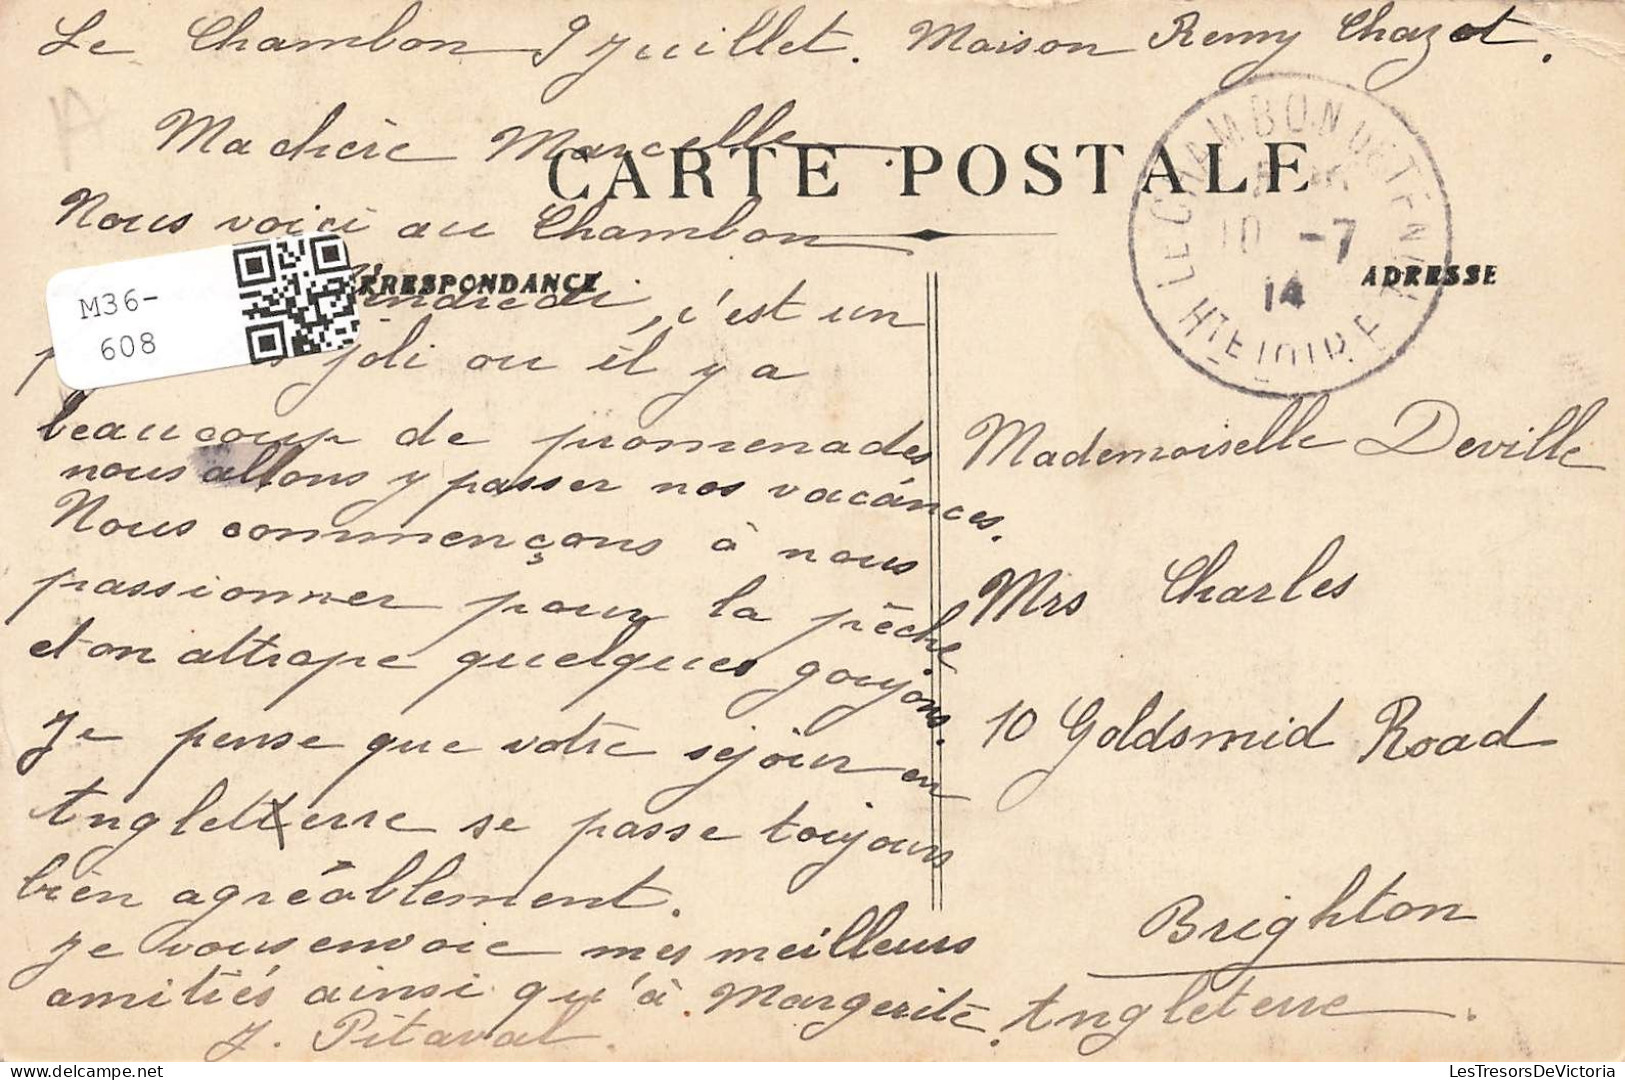 Le Chambon 9 Juillet. Maison Remy Chazot.
Ma chère Marcelle
CARTE POSTALE
Nous voici au Chambon
RRESPONDANCE
Vendredi, c'est un
joli ou il y a
beaucoup de promenades
nous allons y passer nos vacances.
Nous commençons à nous
passionner pour la pêche
et on attrape quelques goujons.
Je pense que votre séjour en
Angletterre se passe toujours
bien agréablement.
Je vous envoie mes meilleurs
amitiés ainsi qu'à Margerite.
J. Pitaval
M36-
608
LE CHAMBON DE TENCE
10 -7
14
HTE LOIRE
ADRESSE
Mademoiselle Deville
Mrs Charles
10 Goldsmid Road
Brighton
Angleterre.
delcampe.net
LesTresorsDeVictoria